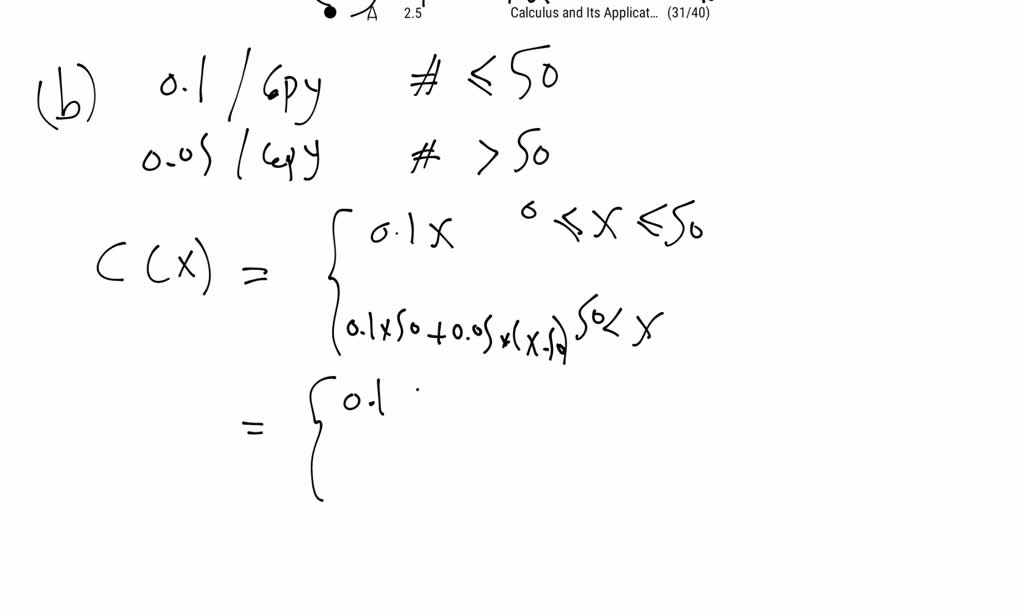 2.5 Calculus and Its Applicat... (31/40)
(b) 0.1 / copy # ≤ 50
0.05 / copy # > 50
C(x) = { 0.1x 0 ≤ x ≤ 50
0.1×50+0.05×(x-50) 50 < x
= { 0.1